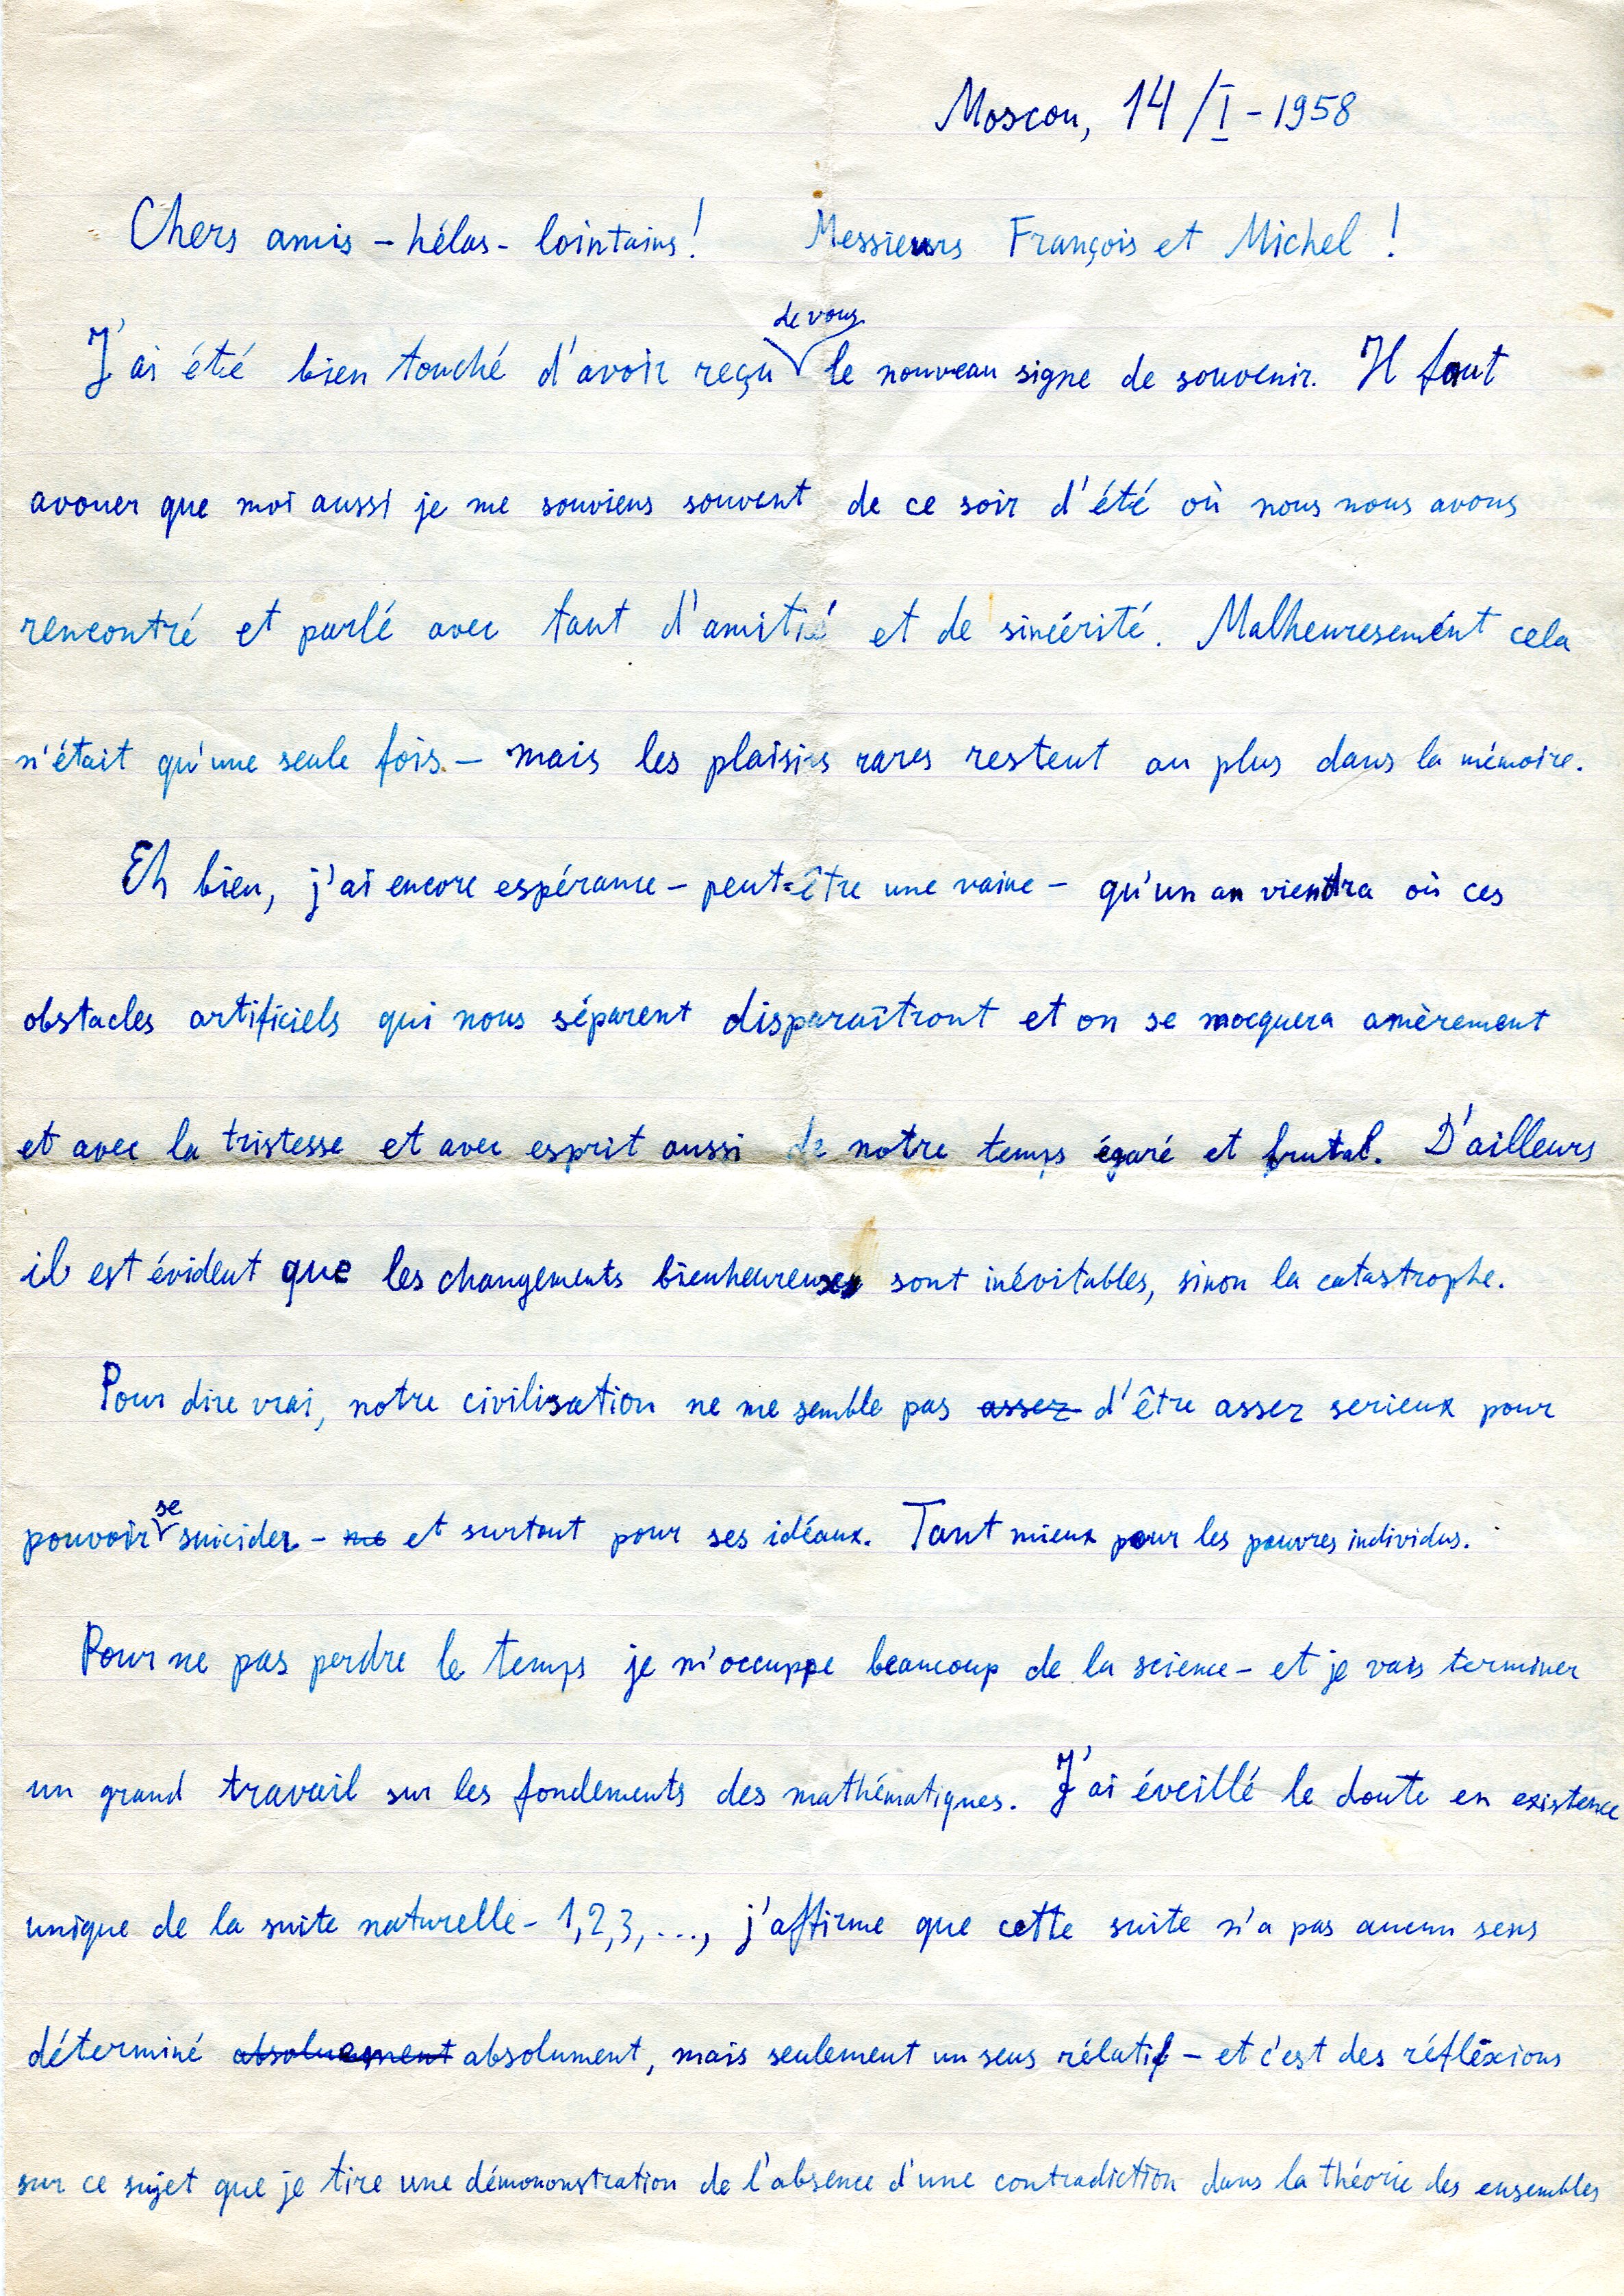 Moscou, 14/I-1958
Chers amis - hélas - lointains! Messieurs François et Michel!
J'ai été bien touché d'avoir reçu de vous le nouveau signe de souvenir. Il faut
avouer que moi aussi je me souviens souvent de ce soir d'été où nous nous avons
rencontré et parlé avec tant d'amitié et de sincérité. Malheuresemént cela
n'était qu'une seule fois. - mais les plaisirs rares restent au plus dans la mémoire.
Eh bien, j'ai encore espérance - peut-être une vaine - qu'un an viendra où ces
obstacles artificiels qui nous séparent disparaîtront et on se mocquera amèrement
et avec la tristesse et avec esprit aussi de notre temps égaré et brutal. D'ailleurs
il est évident que les changements bienheureuses sont inévitables, sinon la catastrophe.
Pour dire vrai, notre civilisation ne me semble pas assez d'être assez serieux pour
pouvoir se suicider - ne et surtout pour ses idéaux. Tant mieux pour les pauvres individus.
Pour ne pas perdre le temps je m'occuppe beaucoup de la science - et je vais terminer
un grand travail sur les fondements des mathématiques. J'ai éveillé le doute en existence
unique de la suite naturelle - 1,2,3,..., j'affirme que cette suite n'a pas aucun sens
déterminé absoluement absolument, mais seulement un sens rélatif - et c'est des réfléxions
sur ce sujet que je tire une démononstration de l'absence d'une contradiction dans la théorie des ensembles